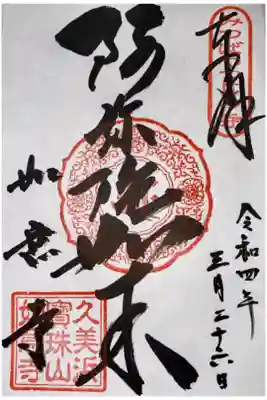 奉拝
令和四年
三月二十六日
阿弥陀如来
如意寺
久美浜
寶珠山
如意寺